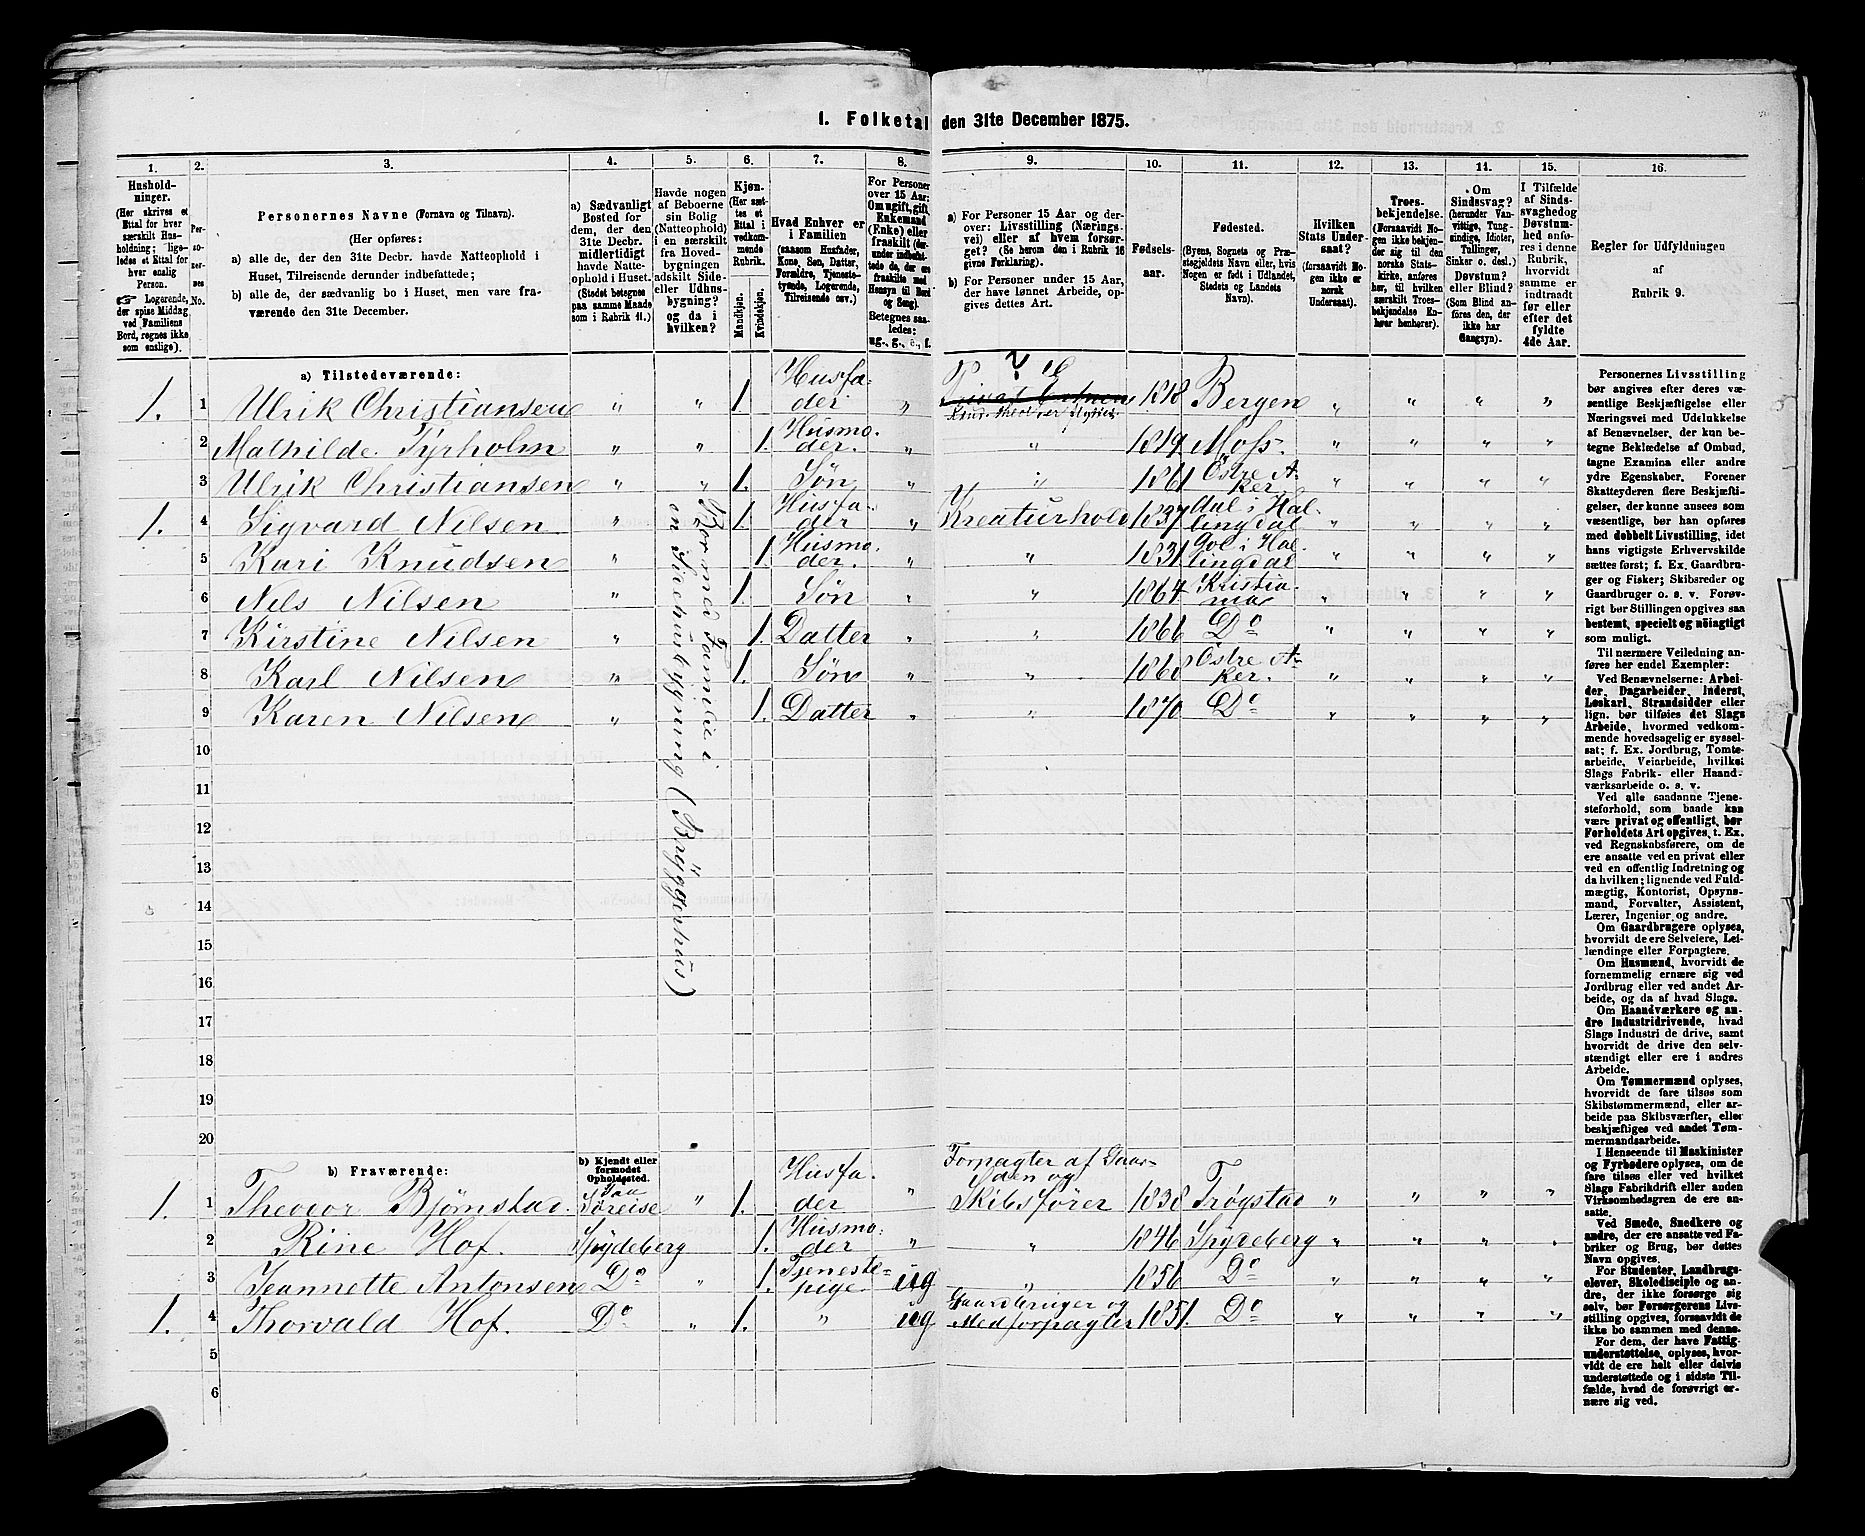 1. Folketal den 31te December 1875.
1. 2. 3. 4. 5. 6. 7. 8. 9. 10. 11. 12. 13. 14. 15. 16.
Hushold-
ninger.
(Her skrives et
Ettal for hver
særskilt Hus-
holdning; lige-
ledes et Ettal for
hver enslig
Person.
☞ Logerende,
der spise Middag
ved Familiens
Bord, regnes ikke
som enslige).
Per-
so-
ner-
nes
No.
Personernes Navne (Fornavn og Tilnavn).
(Her opføres:
a) alle de, der den 31te Decbr. havde Natteophold i
Huset, Tilreisende derunder indbefattede;
b) alle de, der sædvanlig bo i Huset, men vare fra-
værende den 31te December.
a) Sædvanligt
Bosted for
dem, der den
31te Decbr.
midlertidigt
havde Natte-
ophold i Huset.
(Stedet betegnes
paa samme Maade
som i Rubrik 11.)
Havde nogen
af Beboerne
sin Bolig
(Natteophold)
i en særskilt
fra Hoved-
bygningen
adskilt Side-
eller Udhus-
bygning?
og da i
hvilken?
Kjøn.
(Her sæt-
tes et
Ettal i
vedkom-
mende
Rubrik.
Mandkjøn.
Kvindekjøn.
Hvad Enhver er
i Familien
(saasom Husfader,
Kone, Søn, Datter,
Forældre, Tjeneste-
tyende, Logerende,
Tilreisende osv.)
For Personer
over 15 Aar:
Om ugift, gift,
Enkemand
(Enke) eller
fraskilt
Betegnes saa-
ledes:
ug., g., e., f.
a) For Personer 15 Aar og der-
over: Livsstilling (Nærings-
vei) eller af hvem forsør-
get. (Se herom den i Rubrik 16
givne Forklaring).
b) For Personer under 15 Aar,
der have lønnet Arbeide, op-
gives dettes Art.
Fødsels-
aar.
Fødested.
(Byens, Sognets og Præ-
stegjeldets Navn eller, hvis
Nogen er født i Udlandet,
Stedets og Landets
Navn).
Hvilken
Stats Under-
saat?
(forsaavidt No-
gen ikke er
norsk
Undersaat).
Troes-
bekjendelse.
(Forsaavidt No-
gen ikke bekjen-
der sig til den
norske Stats-
kirke, anføres
her, til hvilken
særskilt Troes-
bekjendelse En-
hver henhører).
Om
Sindssvag?
(herunder Van-
vittige, Tung-
sindige, Idioter,
Tullinger,
Sinker o. desl.)
Døvstum?
eller Blind?
(Som Blind an-
føres den, der
ikke har
Gangsyn).
I Tilfælde
af Sinds-
svaghed og
Døvstum-
hed anfø-
res i denne
Rubrik,
hvorvidt
samme er
indtraadt
før eller
efter det
fyldte
4de Aar.
Regler for Udfyldningen
af
Rubrik 9.
a) Tilstedeværende:
1. 1 Ulrik Christiansen " " 1. Husfa-
der " 1818 Bergen " " " "
2 Mathilde Tyrholm " " 1. Husmo-
der. " " 1819 Moss. " " " "
3 Ulrik Christiansen " " 1. Søn " " 1861 Østre A-
ker. " " " "
1. 4 Sigvard Nilsen " 1. Husfa-
der " Kreaturhold 1837 Aal i Hal-
lingdal " " " "
5 Kari Knudsen " 1. Husmo-
der. " " 1831 Gol i Hal-
lingdal " " " "
6 Nils Nilsen " 1. Søn " " 1864 Kristia-
nia " " " "
7 Kirstine Nilsen " 1. Datter " " 1866 Do " " " "
8 Karl Nilsen " 1. Søn " " 1868 Østre A-
ker. " " " "
9 Karen Nilsen " 1. Datter " " 1870 Do " " " "
Bor med Familie i
en Sidehusbygning (Bryggerhus)
10
11
12
13
14
15
16
17
18
19
20
b) Fraværende:
b) Kjendt eller
formodet
Opholdssted.
1. 1 Theodor Bjørnstad. Paa
Søreise " 1. Husfa-
der " Forpagter af Gaar-
den og
Skibsfører 1838 Trøgstad " " " "
2 Rine Hof. Spydeberg 1. Husmo-
der " " 1846 Spydeberg " " " "
3 Jeannette Antonsen Do " 1. Tjeneste-
pige ug " 1856 Do " " " "
1. 4 Thorvald Hof. Do " 1. " ug Gaardbruger og
Medforpagter 1851. Do " " " "
5
6
Personernes Livsstilling
bør angives efter deres væ-
sentlige Beskjæftigelse eller
Næringsvei med Udelukkelse
af Benævnelser, der kun be-
tegne Beklædelse af Ombud,
tagne Examina eller andre
ydre Egenskaber. Forener
Skatteyderen flere Beskjæfti-
gelser, der kunne ansees som
væsentlige, bør han opføres
med dobbelt Livsstilling, idet
hans vigtigste Erhvervskilde
sættes først; f. Ex. Gaardbru-
ger og Fisker; Skibsreder og
Gaardbruger o. s. v. Forøv-
rigt bør Stillingen opgives saa
bestemt, specielt og nöiagtigt
som muligt.
Til nærmere Veiledning an-
føres her endel Exempler:
Ved Benævnelserne: Arbei-
der, Dagarbeider, Inderst,
Løskarl, Strandsidder eller
lign. bør tilføies det Slags
Arbeide, hvormed vedkom-
mende hovedsagelig er syssel-
sat; f. Ex. Jordbrug, Tomte-
arbeide, Veiarbeide, hvilket
Slags Fabrik- eller Haand-
værksarbeide o. s. v.
Ved alle saadanne Tjene-
steforhold, som baade kan
være privat og offentligt, bør
Forholdets Art opgives, t. Ex.
ved Regnskabsførere, om de
ere ansatte ved en privat eller
ved en offentlig Indretning og
da hvilken; lignende ved Fuld-
mægtig, Kontorist, Opsyns-
mand, Forvalter, Assistent,
Lærer, Ingeniør og andre.
Om Gaardbrugere oplyses,
hvorvidt de ere Selveiere, Lei-
lændinge eller Forpagtere.
Om Husmænd, hvorvidt de
fornemmelig ernære sig ved
Jordbrug eller ved andet Ar-
beide, og da af hvad Slags.
Om Haandværkere og an-
dre Industridrivende, hvad
Slags Industri de drive, samt
hvorvidt de drive den selv-
stændigt eller ere i andres
Arbeide.
Om Tømmermænd oplyses,
hvorvidt de fare tilsøs som
Skibstømmermænd, eller ar-
beide paa Skibsværfter, eller
beskjæftiges ved andet Tøm-
mermandsarbeide.
I Henseende til Maskinister
og Fyrbødere oplyses, om de
fare tilsøs eller ved hvilket
Slags Fabrikdrift eller anden
Virksomhedsgren de ere an-
satte.
Ved Smede, Snedkere og
andre, der ere ansatte ved Fa-
briker og Brug, bør dettes
Navn opgives.
For Studenter, Landbrugs-
elever, Skoledisciple og an-
dre, der ikke forsørge sig
selv, bør Forsørgerens Livs-
stilling opgives, forsaavidt de
ikke bo sammen med denne.
For dem, der have Fattig-
understøttelse, oplyses, hvor-
vidt de ere helt eller delvis
understøttede og i sidste Til-
fælde, hvad de forøvrigt er-
nære sig ved.